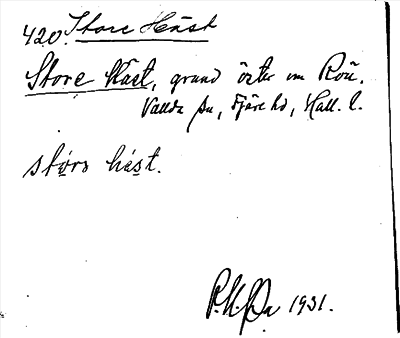 420. Store Häst
Store Häst, grund öster om Röu.
Vallda sn, Fjäre hd, Hall. l.
støra hæst.
1931.